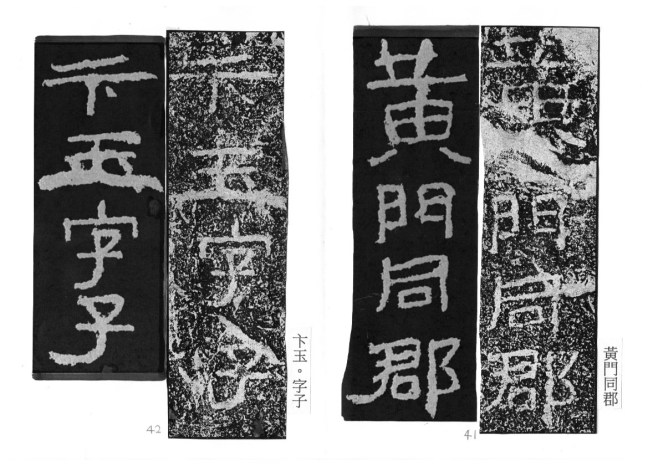 黃門同郡
黃門同郡
黃門同郡
41
卞玉字子
卞玉字子
卞玉。字子
42